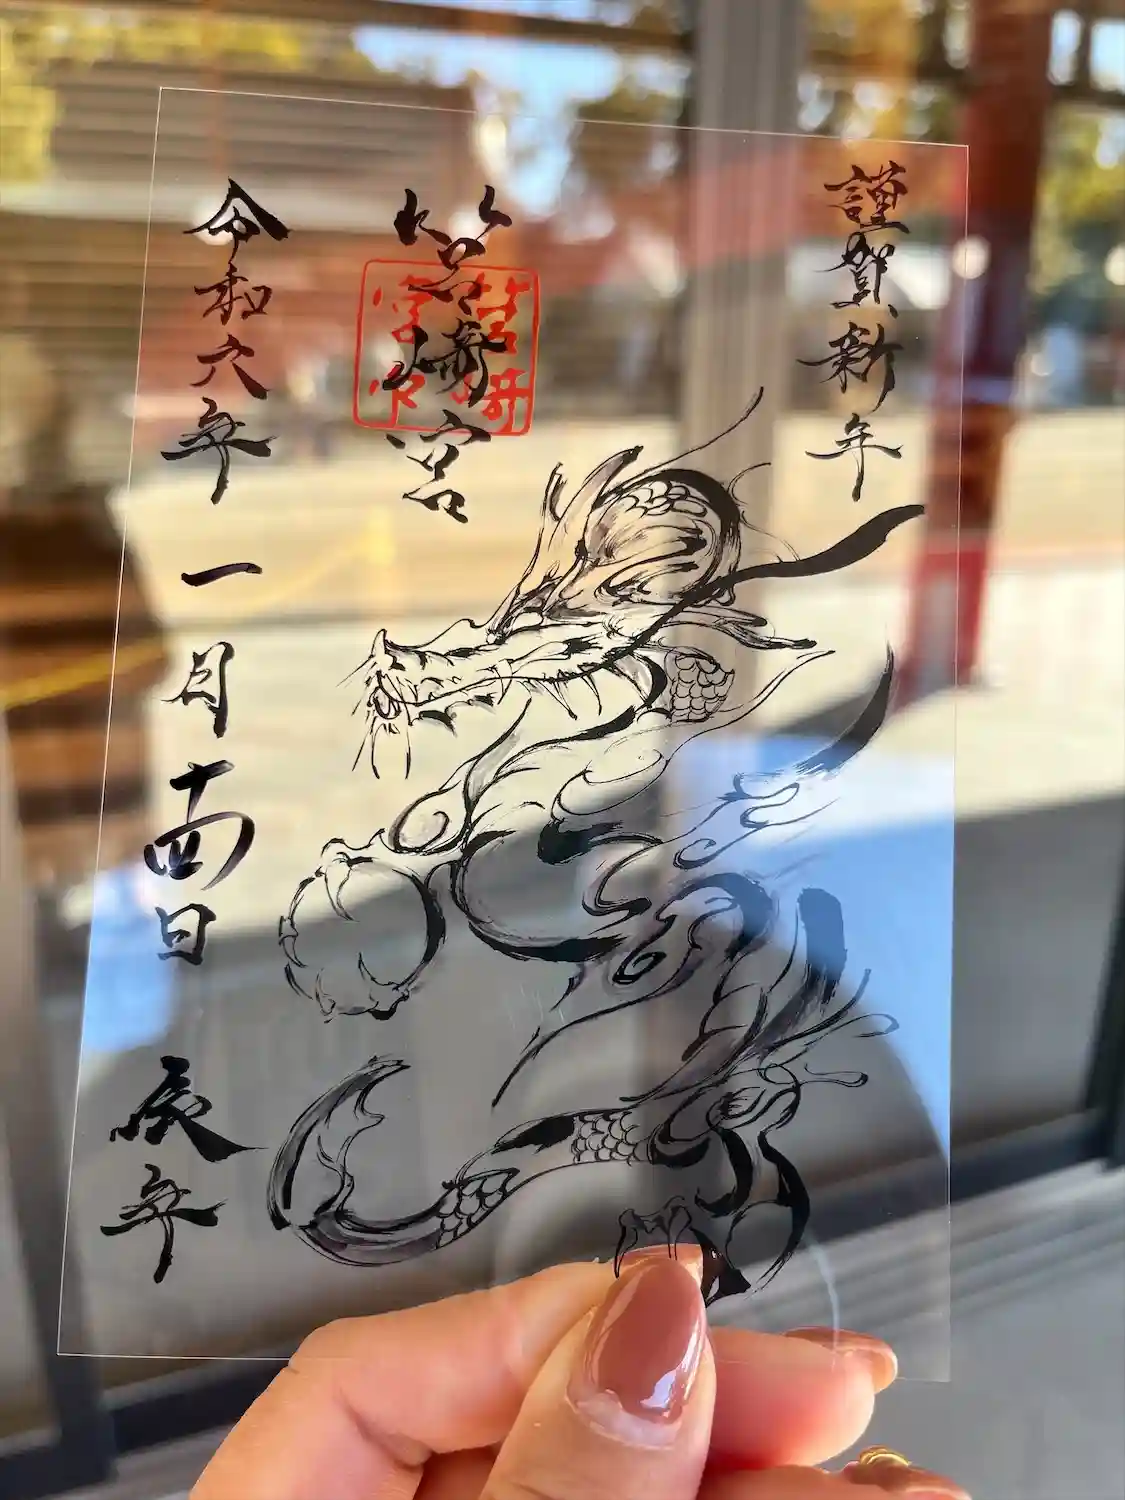 謹賀新年
筥崎宮
筥崎
宮印
令和六年一月十四日 辰年